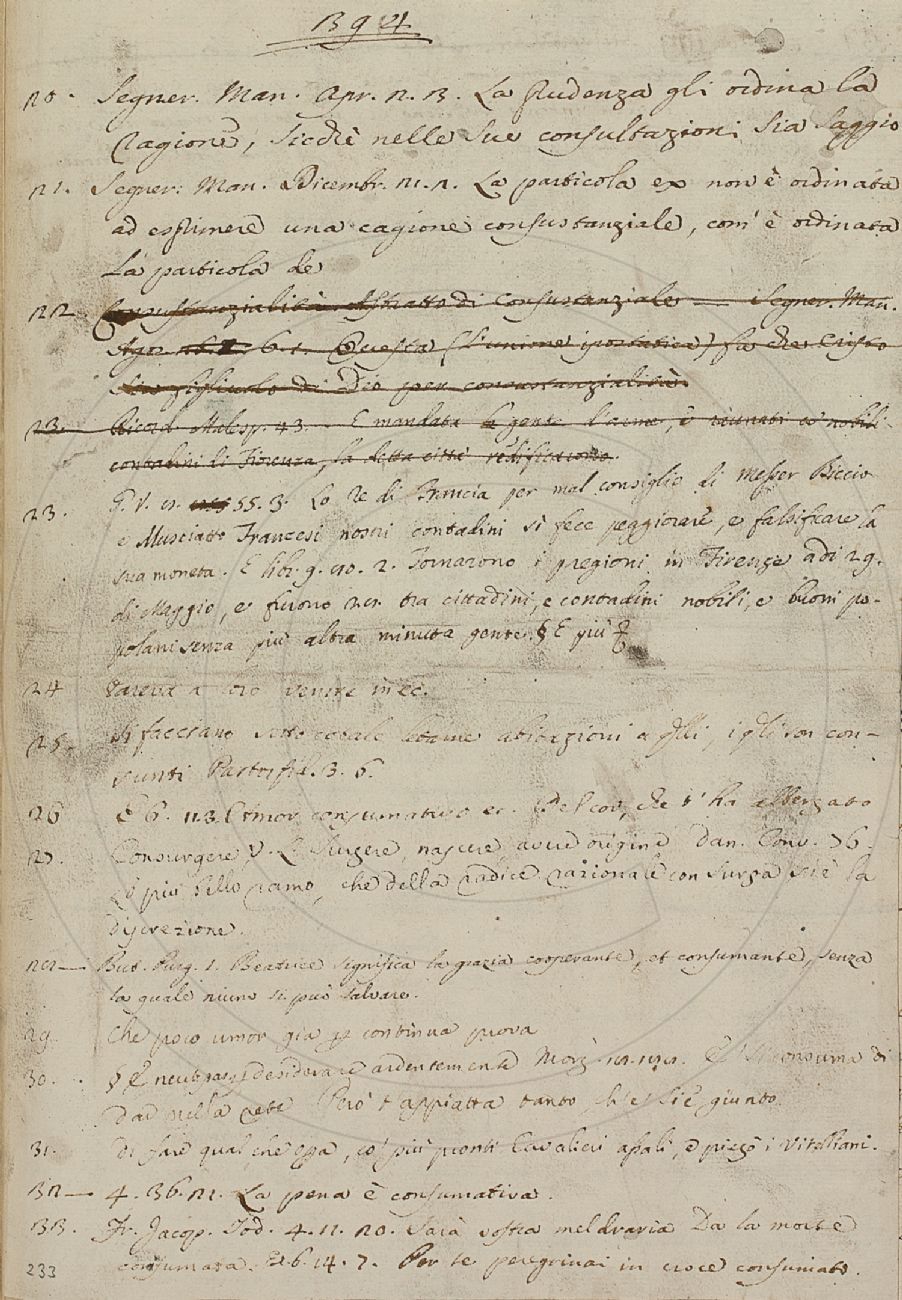 20. Segner. Man. Apr. 12. 13. La Prudenza gli ordina la
ragione, sicchè nelle sue consultazioni sia saggio
21. Segner. Man. Dicembr. 21. 2. La particola ex non è ordinata
ad esprimere una cagione consustanziale, com' è ordinata
la particola de
22 Consustanzialità Astratto di Consustanziale Segner. Man.
Agos. 6. 1. Questa (l'unione ipostatica) fa che Cristo
sia figliuolo di Dio per consustanzialità.
23. Ricord. Malesp. 43. E mandata la gente l'arme, e raunati co' nobili
contadini di Fiorenza, la detta città redificarono.
23. G. V. 8. 55. 3. Lo Re di Francia per mal consiglio di messer Biccio
e Musciatto Francesi nostri contadini si fece peggiorare, e falsificare la
sua moneta. E lib. 9. 2. Tornarono i pregioni in Firenze adi 29.
di Maggio, e furono 28. tra cittadini, e contadini nobili, e buoni po-
polani senza più altra minuta gente. § E più
24 pareva a loro venire in ec.
25. Si facciano sotto cotale letame abitazioni a , i gli son con-
sunti Pastor fid. 3. 6.
26 E 6. 113. L'Amor consumativo ec. Del cor, che t' ha albergato
27. Consurgere V. L. Surgere, nascere avere origine Dan. Conv. 76.
Lo più bello ramo, che della radice razionale consurga si è la
discrezione.
28 — But. Purg. 1. Beatrice significa la grazia cooperante, et consumante, senza
la quale niuno si può salvare.
29 Che poco umor già per continua prova
30. § E neutr. pass. desiderare ardentemente Morg. E' si consuma di
dar nella rete Però s' appiatta tanto ch' e' si è giunto
31. di fare qual che opa, co' più pronti Cavalieri assalì, e piegò i Vitelliani.
32 — 4. 36. 21. La pena è consumativa.
33. Fr. Jacop. Tod. 4. 11. 20. Sarà vostra Da la morte
consumata. E 6. 14. 7. Per te peregrinai in croce consumato.
233